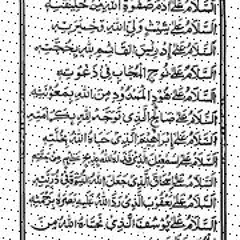 السَّلَامُ عَلَىٰ آدَمَ صَفْوَةِ اللهِ مِنْ خَلِيقَتِهِ
السَّلَامُ عَلَىٰ شَيْثٍ وَلِيِّ اللهِ وَخِيَرَتِهِ
السَّلَامُ عَلَىٰ إِدْرِيسَ الْقَائِمِ لِلّٰهِ بِحُجَّتِهِ
السَّلَامُ عَلَىٰ نُوحٍ الْمُجَابِ فِي دَعْوَتِهِ
السَّلَامُ عَلَىٰ هُودٍ الْمَمْدُودِ مِنَ اللهِ بِمَعُونَتِهِ
السَّلَامُ عَلَىٰ صَالِحٍ الَّذِي تَوَجَّهَ لِلّٰهِ بِكَرَامَتِهِ
السَّلَامُ عَلَىٰ إِبْرَاهِيمَ الَّذِي حَبَاهُ اللهُ بِخُلَّتِهِ
السَّلَامُ عَلَىٰ إِسْمَعِيلَ الَّذِي فَدَاهُ اللهُ بِذِبْحٍ عَظِيمٍ مِنْ جَنَّتِهِ
السَّلَامُ عَلَىٰ إِسْحَاقَ الَّذِي جَعَلَ اللهُ النُّبُوَّةَ فِي ذُرِّيَّتِهِ
السَّلَامُ عَلَىٰ يَعْقُوبَ الَّذِي رَدَّ اللهُ عَلَيْهِ بَصَرَهُ بِرَحْمَتِهِ
السَّلَامُ عَلَىٰ يُوسُفَ الَّذِي نَجَّاهُ اللهُ مِنَ